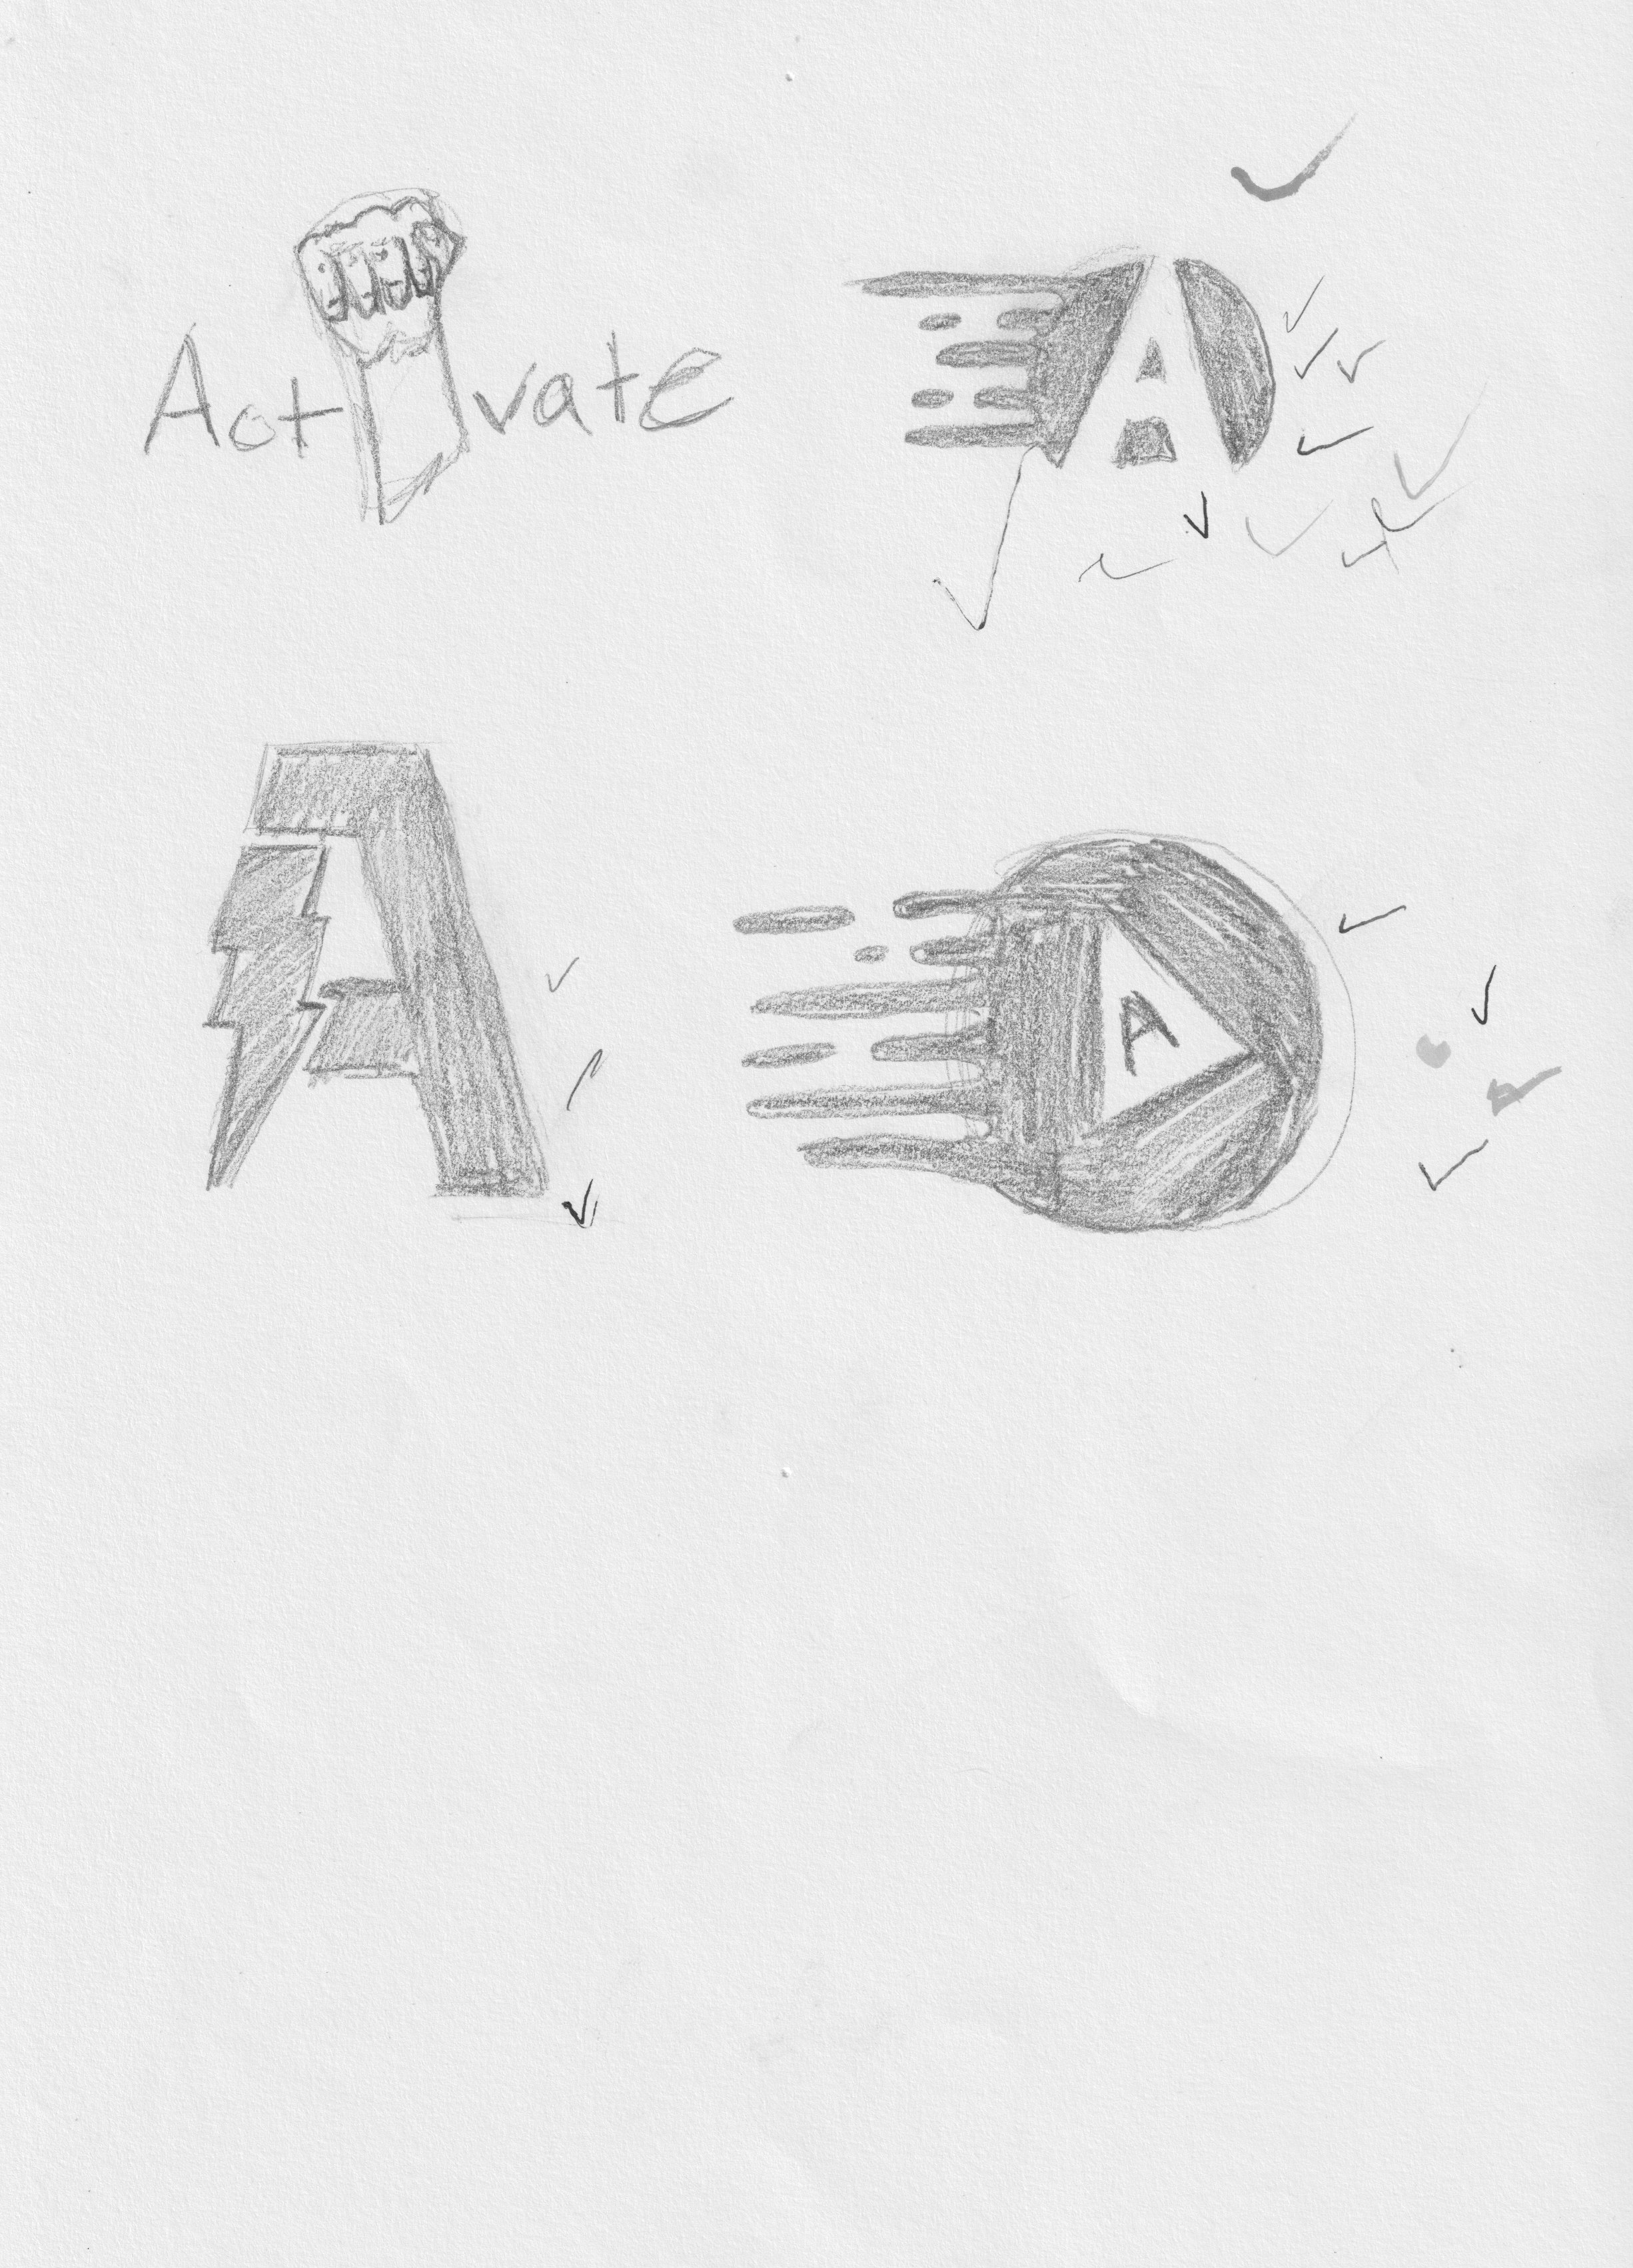 Act vate
A
A
A